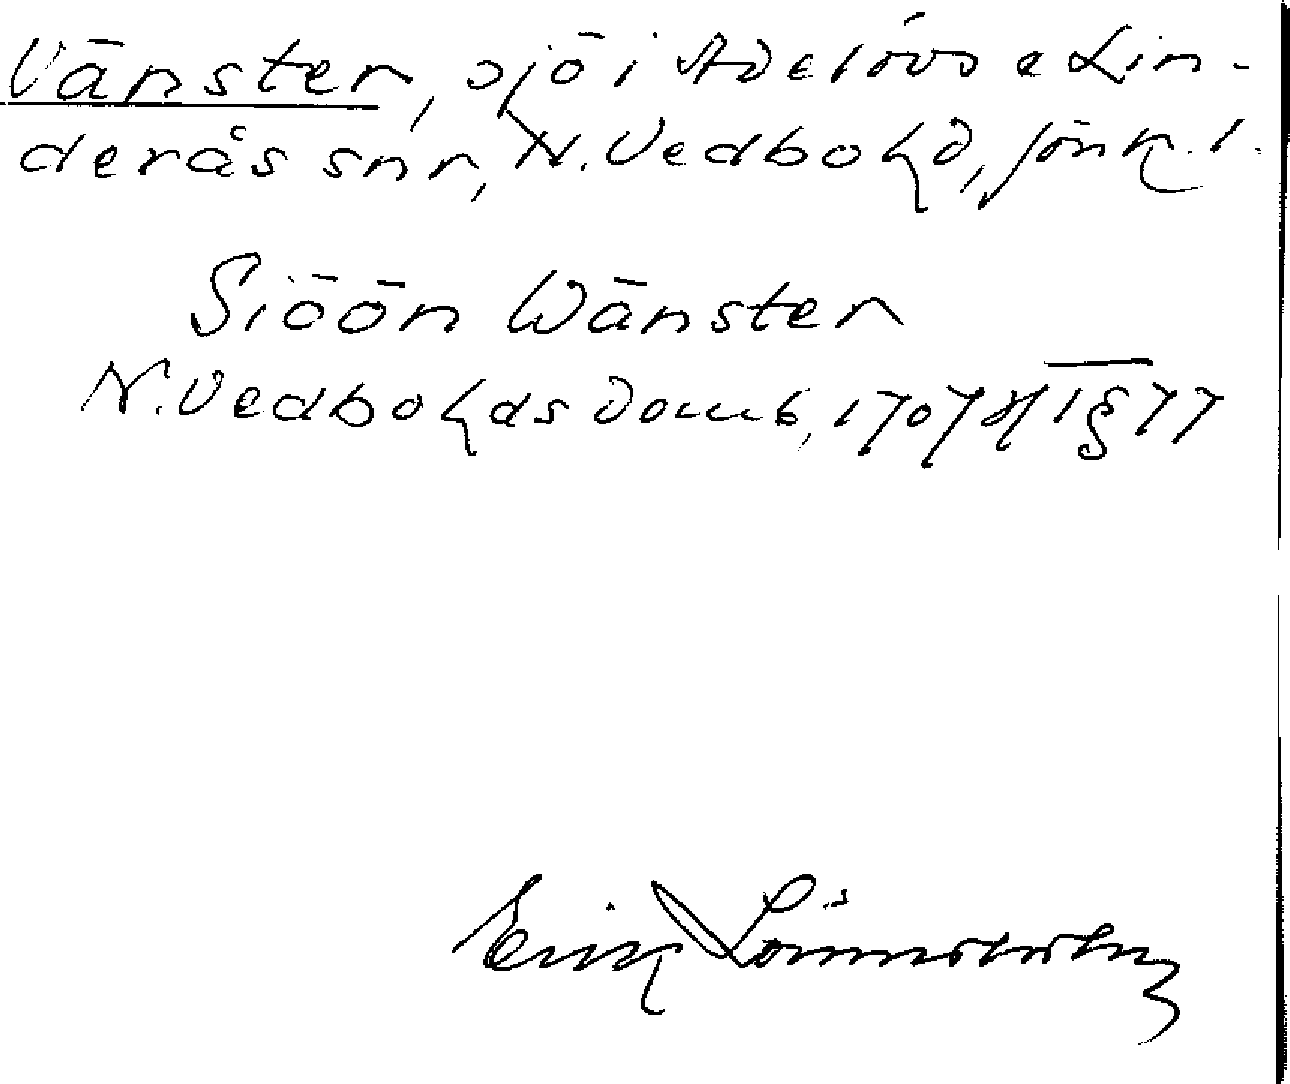 Vänster, sjö i Adelövs o Lin-
derås snr, N. Vedbo hd, Jönk. l.
Siöön Wänster
N. Vedbo hds domb, 1707 1 § 77
Erik